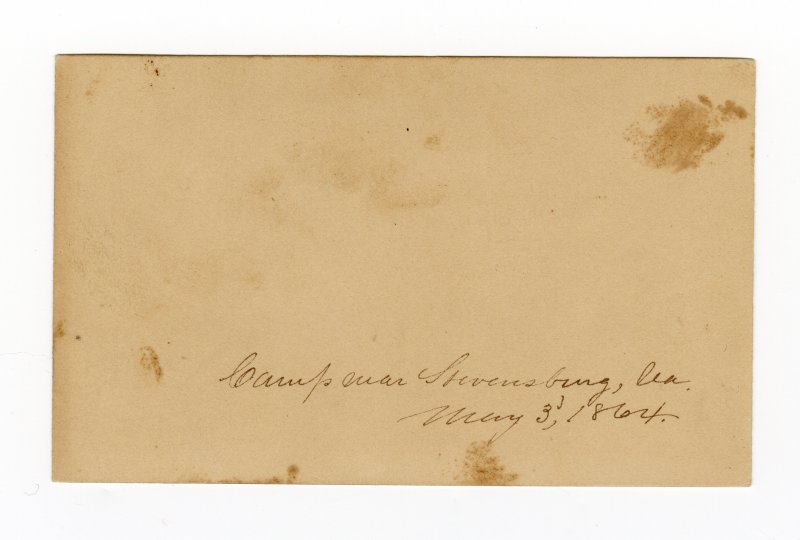 Camp near Stevensburg, Va.
May 3d, 1864.